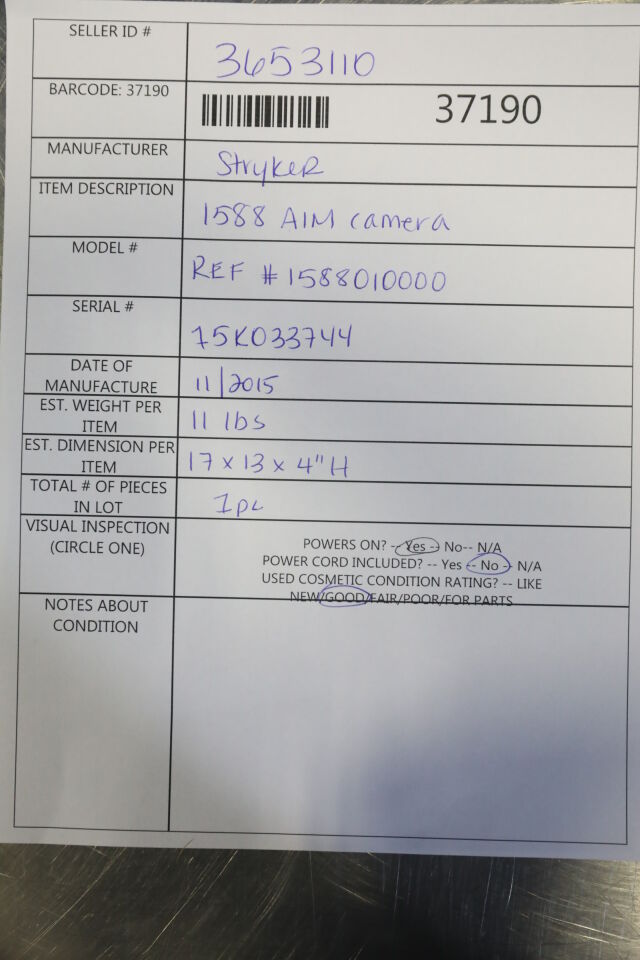 SELLER ID #
3653110
BARCODE: 37190
37190
MANUFACTURER
Stryker
ITEM DESCRIPTION
1588 AIM camera
MODEL #
REF #1588010000
SERIAL #
15K033744
DATE OF
MANUFACTURE
11/2015
EST. WEIGHT PER
ITEM
11 lbs
EST. DIMENSION PER
ITEM
17 x 13 x 4"H
TOTAL # OF PIECES
IN LOT
1pc
VISUAL INSPECTION
(CIRCLE ONE)
POWERS ON? -- Yes -- No-- N/A
POWER CORD INCLUDED? -- Yes -- No -- N/A
USED COSMETIC CONDITION RATING? -- LIKE
NEW/GOOD/FAIR/POOR/FOR PARTS
NOTES ABOUT
CONDITION